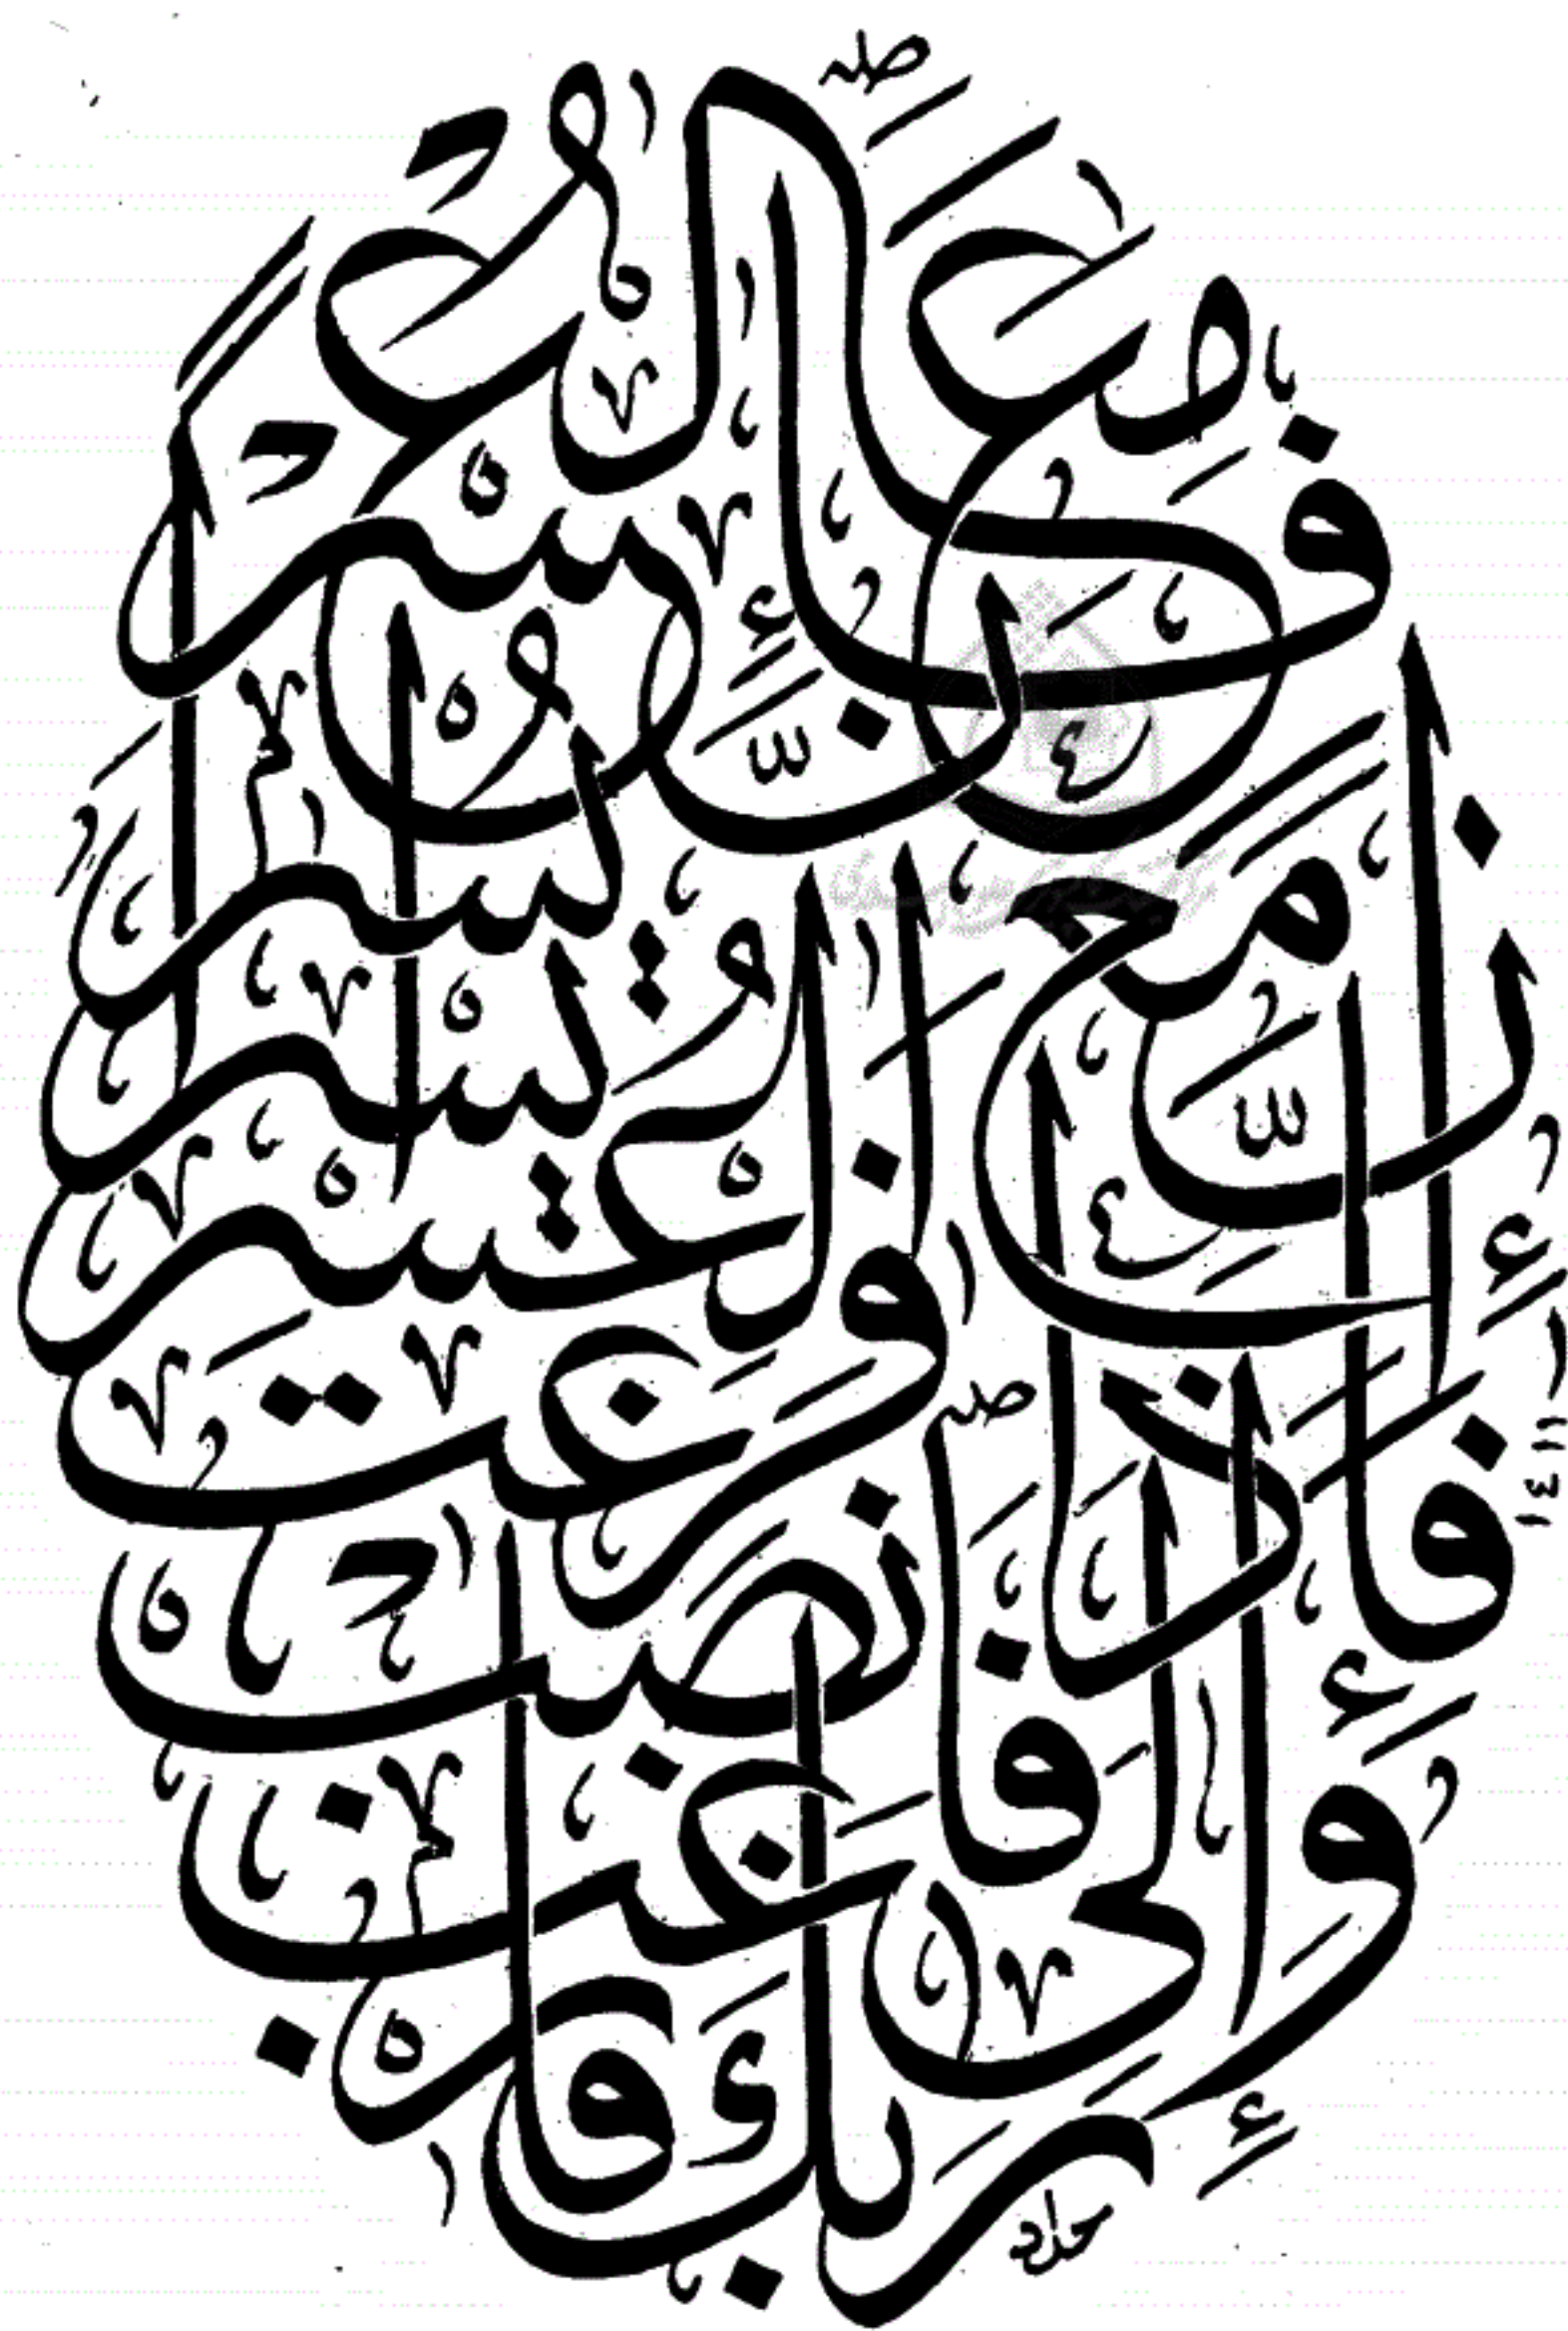 فَإِنَّ مَعَ الْعُسْرِ يُسْرًا
إِنَّ مَعَ الْعُسْرِ يُسْرًا
فَإِذَا فَرَغْتَ فَانْصَبْ
وَإِلَى رَبِّكَ فَارْغَبْ